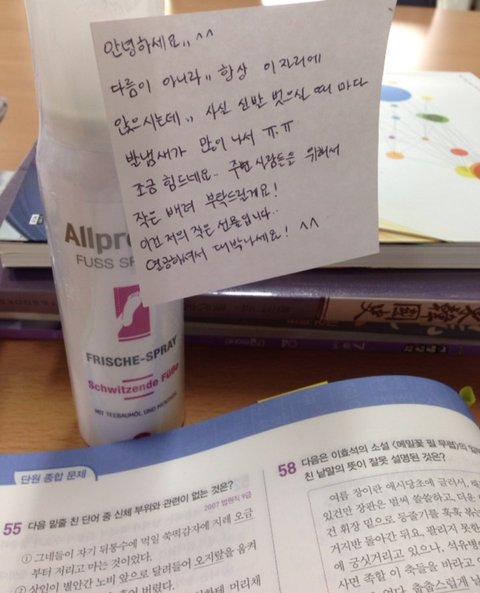 안녕하세요,, ^^
다름이 아니라,, 항상 이자리에
앉으시는데,, 사실 신발 벗으실 때 마다
발냄새가 많이 나서 ㅠ.ㅠ
조금 힘드네요.. 주변 사람들은 위해서
작은 배려 부탁드릴게요!
이건 저의 작은 선물입니다..
열공하셔서 대박나세요! ^^
Allpre
FUSS SP
FRISCHE-SPRAY
Schwitzende Füße
MIT TEEBAUMÖL UND
단원 종합 문제
55 다음 밑줄 친 단어 중 신체 부위와 관련이 없는 것은?
2007 법원직 9급
① 그네들이 자기 뒤통수에 먹일 쑥떡감자에 지레 오금
부터 저리고 마는 것이었다.
② 상인이 별안간 노비 앞으로 달려들어 오지랖을 움켜
58 다음은 이효석의 소설 <메밀꽃 필 무렵>의
친 낱말의 뜻이 잘못 설명된 것은?
여름 장이란 애시당초에 글러서, 해
있건만 장판은 벌써 쓸쓸하고, 더운
건 휘장 밑으로 등줄기를 훅훅 볶는
거지반 돌아간 뒤요, 팔리지 못한
에 궁싯거리고 있으나, 석유병
사면 족할 이 축들을 바라고